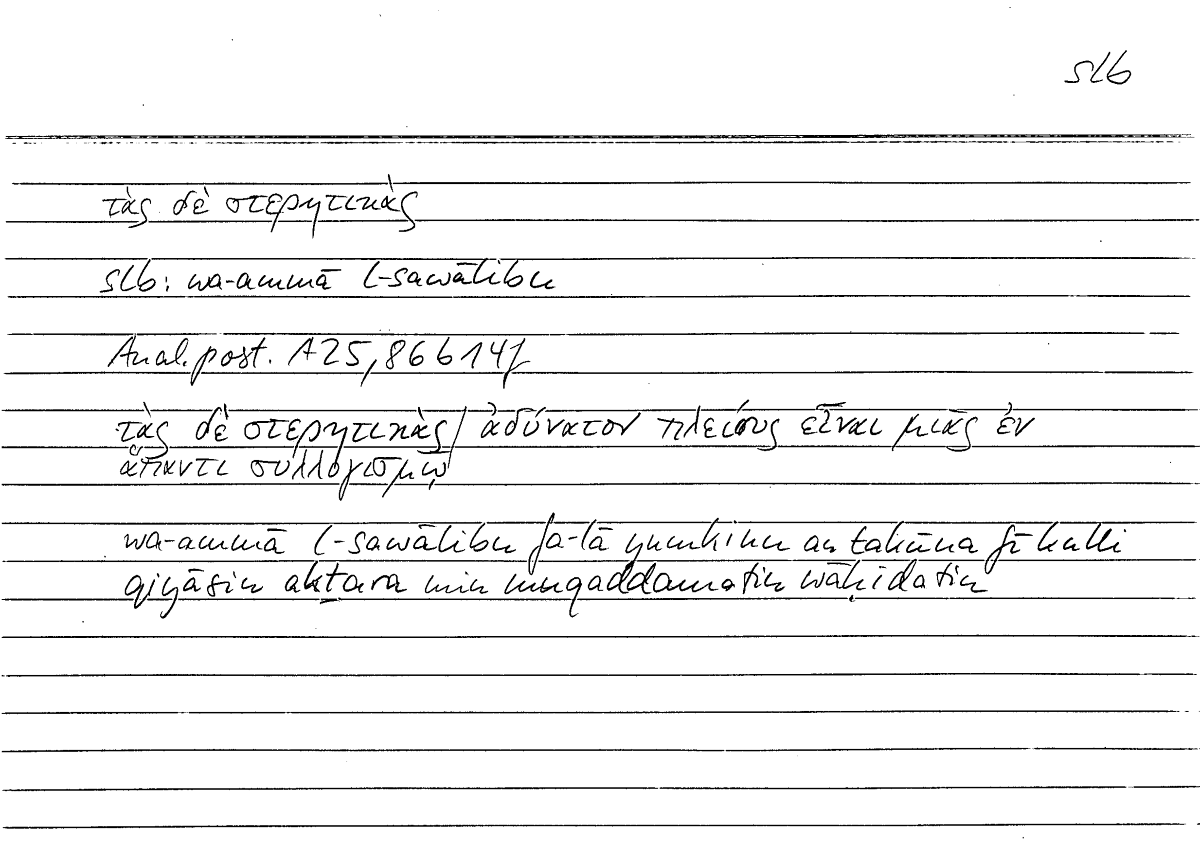 slb
τὰς δὲ στερητικὰς
slb: wa-ammā l-sawālibu
Anal. post. A25, 86b14f
τὰς δὲ στερητικὰς/ ἀδύνατον πλείους εἶναι μιᾶς ἐν
ἅπαντι συλλογισμῷ
wa-ammā l-sawālibu fa-lā yumkinu an takūna fī kulli
qiyāsin akṯara min muqaddamatin wāḥidatin